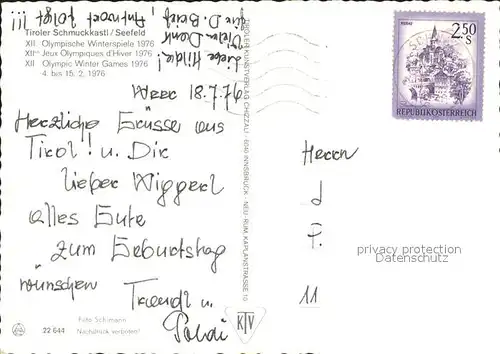 Tiroler Schmuckkastl / Seefeld
XII. Olympische Winterspiele 1976
XIImes Jeux Olympiques d'Hiver 1976
XII Olympic Winter Games 1976
4. bis 15. 2. 1976
Liebe Hilde!
Vielen Dank
für D. Brief, Antwort folgt!!!
18.7.76
Herzliche Grüsse aus
Tirol! u. Dir
lieber Wiggerl
alles Gute
zum Geburtstag
wünschen
Traudl u.
Poldi
Foto Schimann
22 644 Nachdruck verboten!
TIROLER KUNSTVERLAG CHIZZALI · 6040 INNSBRUCK - NEU-RUM, KAPLANSTRASSE 10
KTV
2.50
S
REPUBLIK ÖSTERREICH
Herrn
J
F.
11
privacy protection
coding DELCAMPE